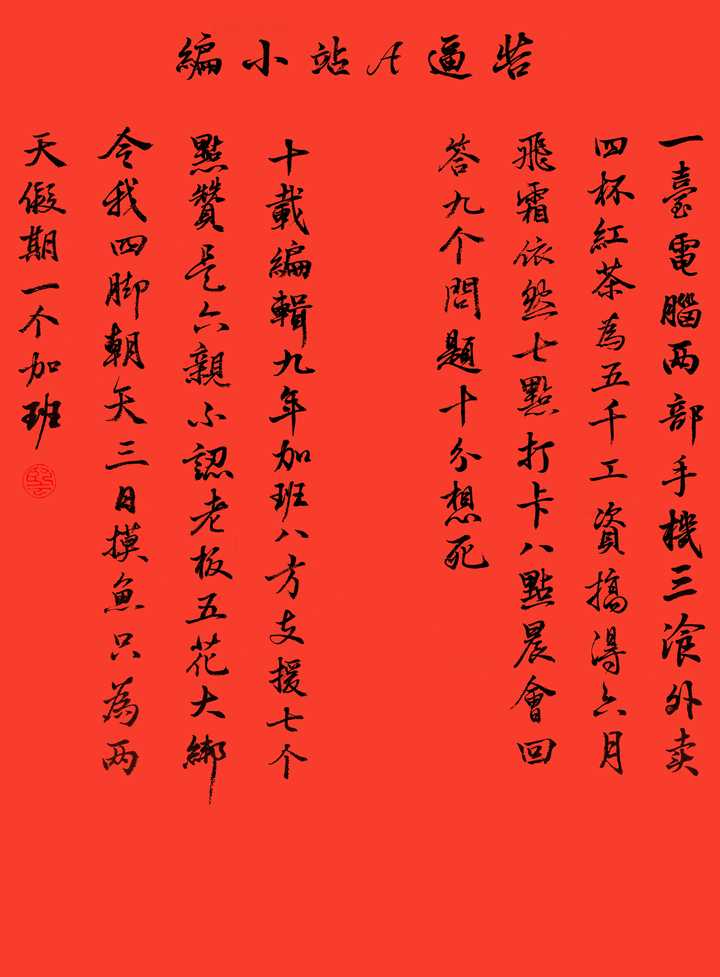 苦逼A站小编
一臺電腦两部手機三飡外卖
四杯紅茶為五千工資搞得六月
飛霜依然七點打卡八點晨會回
答九个問題十分想死
十載編輯九年加班八方支援七个
點贊是六親不認老板五花大綁
令我四脚朝天三日摸魚只為两
天假期一个加班